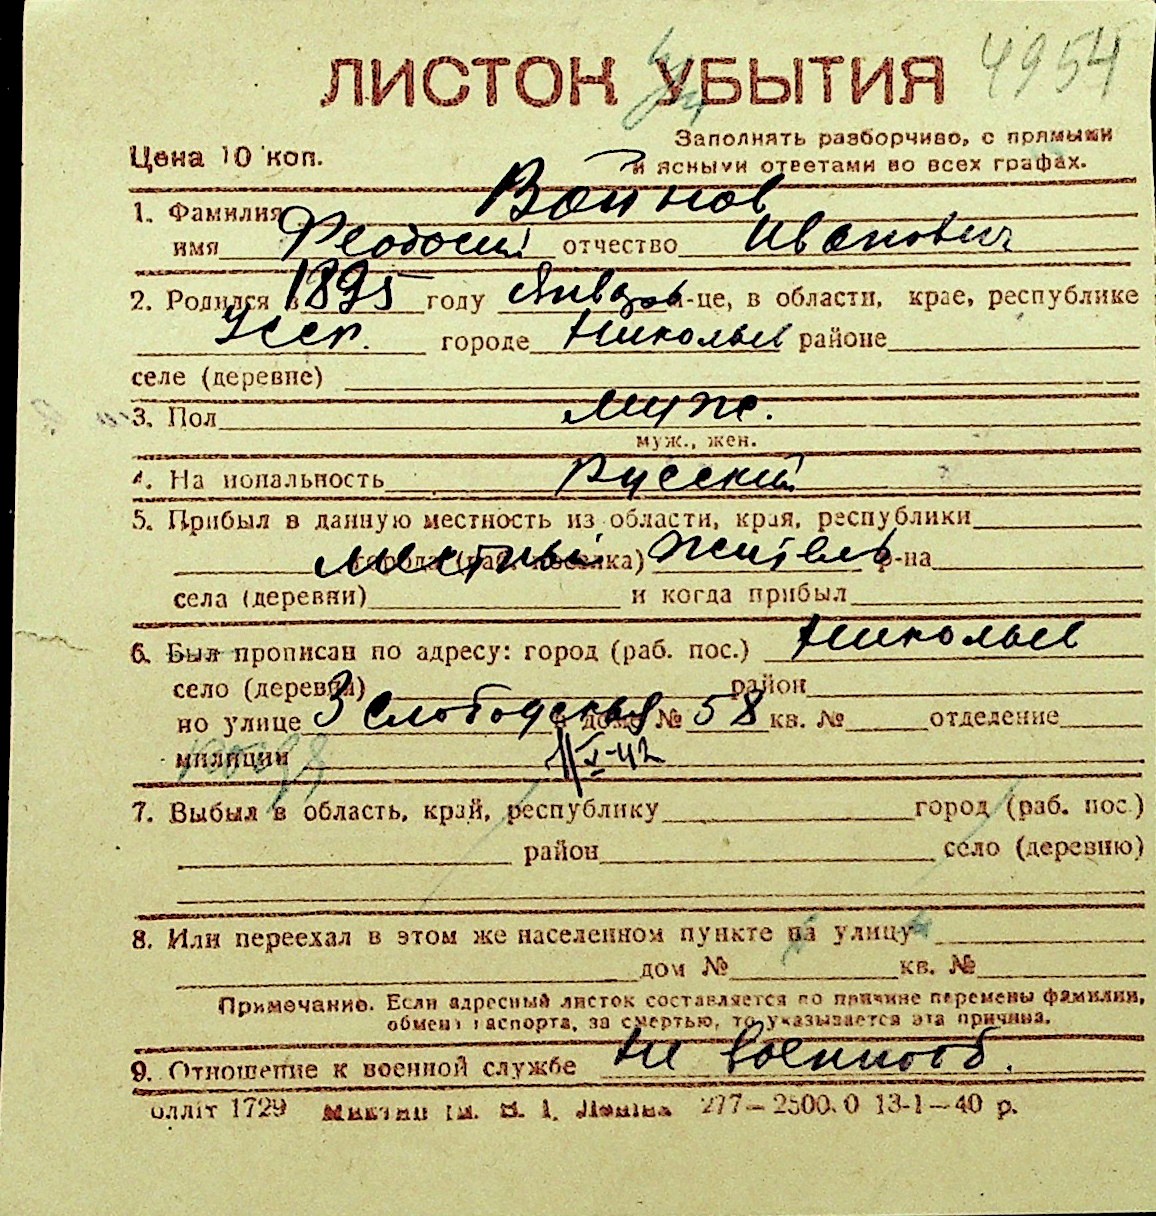 4954
ЛИСТОК УБЫТИЯ
Заполнять разборчиво, с прямыми
Цена 10 коп.
и ясными ответами во всех графах.
1. Фамилия Войнов
имя Феодосий отчество Иванович
2. Родился в 1895 году Январь м-це, в области, крае, республике
Усср. городе Николаев районе
селе (деревне)
3. Пол муж.
муж., жен.
4. Национальность Русский
5. Прибыл в данную местность из области, края, республики
города (раб. поселка) Местный житель р-на
села (деревни) и когда прибыл
6. Был прописан по адресу: город (раб. пос.) Николаев
село (деревня) район
по улице 3 Слободская дом № 58 кв. № отделение
милиции
7. Выбыл в область, край, республику город (раб. пос.)
район село (деревню)
8. Или переехал в этом же населенном пункте на улицу
дом № кв. №
Примечание. Если адресный листок составляется по причине перемены фамилии,
обмена паспорта, за смертью, то указывается эта причина.
9. Отношение к военной службе не военнооб.
олліт 1729 277—2500.0 13-1—40 р.